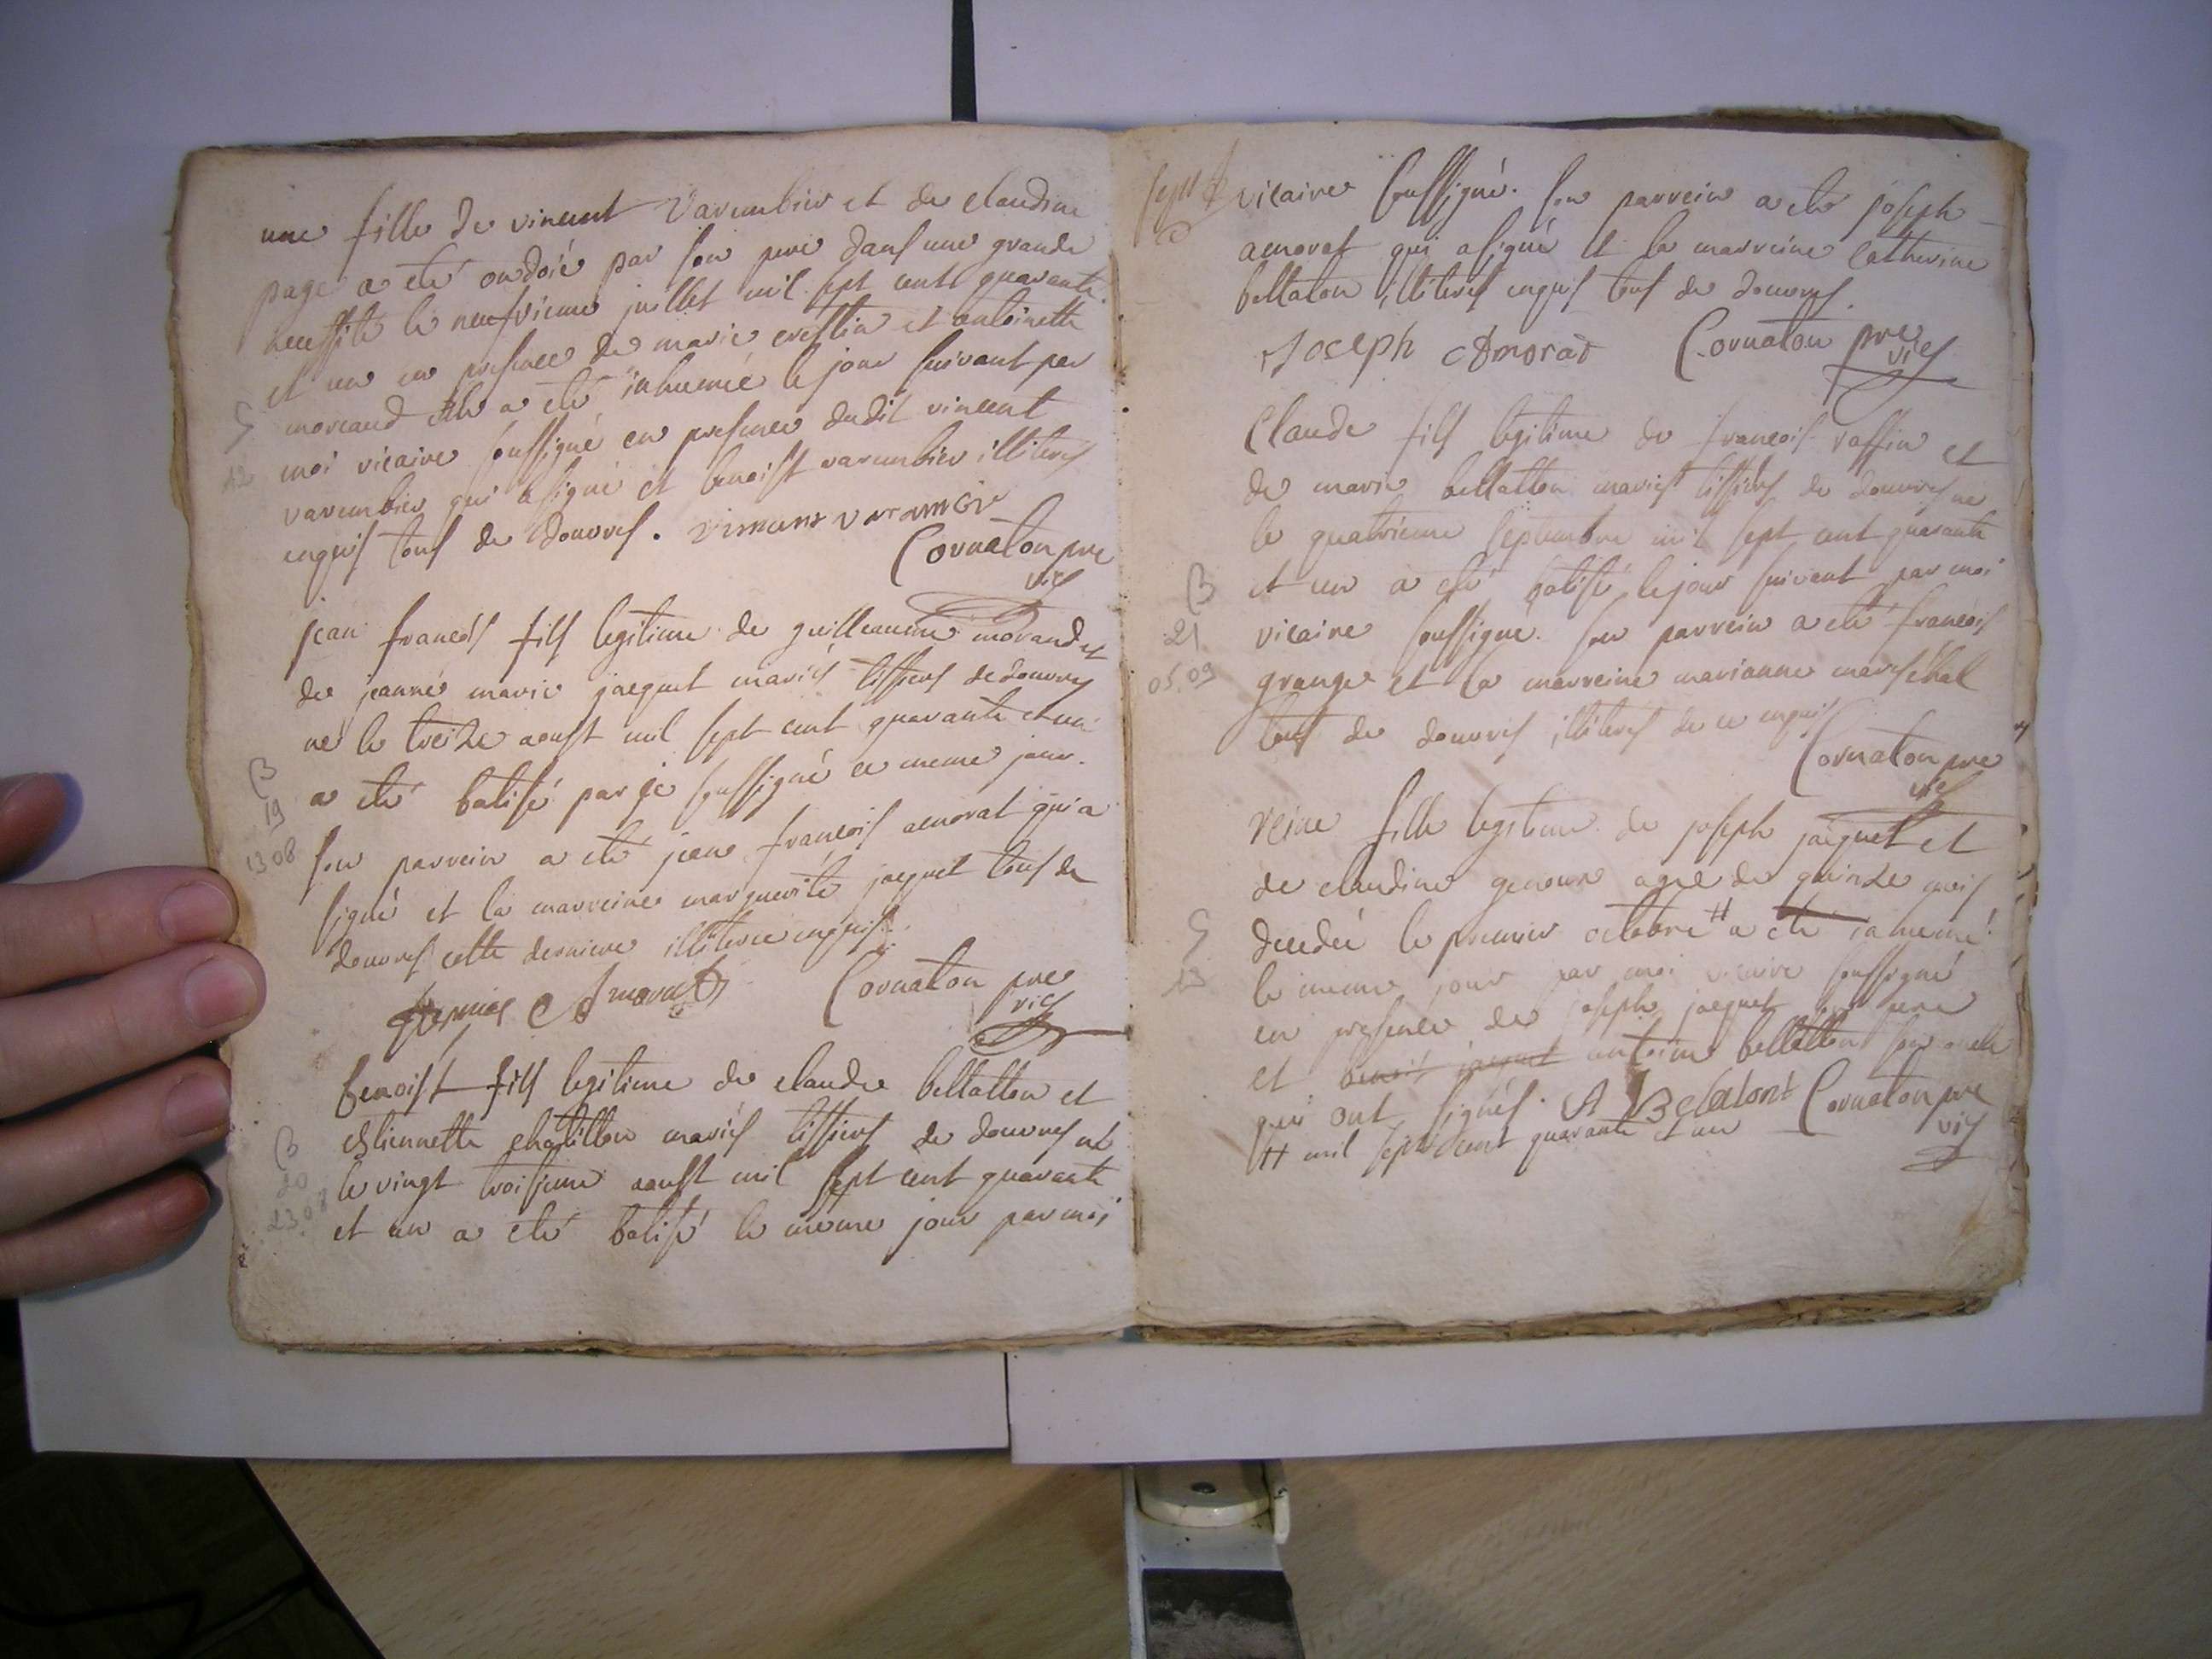 une fille de vincent Varembier et de claudine
page a eté ondoié par son pere dans une grande
necessité le neufvieme juillet mil sept cent quarante
et un en presence de marie crestin et antoinette
S moreaud elle a eté inhumée le jour suivant par
12 moi vicaire soussigné en presence dudit vincent
varembier qui a signé et benoist varembier illiteres
enquis tous de douvres. vincent varambier
Cornaton pre
vic
jean françois fils legitime de guilleaume morand et
de jeanne marie jacquet mariés tissiers de douvres
né le treize aoust mil sept cent quarante et un
B a eté batisé par je soussigné ce meme jour.
19
13 08 son parrein a eté jean françois amorat qui a
signé et la marreine marguerite jacquet tous de
douvres cette derniere illiteree enquis.
Amorat Cornaton pre
vic
benoist fils legitime de claude bellatton et
B estiennette chatillon mariés tissiers de douvres né
20 le vingt troisieme aoust mil sept cent quarante
23.08 et un a eté batisé le meme jour par moi
vicaire soussigné. son parrein a eté joseph
amorat qui a signé et la marreine catherine
bellaton illiteres enquis tous de douvres.
Joseph Amorat Cornaton pre
vic
Claude fils legitime de françois raffin et
de marie bellatton mariés tissiers de douvres né
le quatrieme septembre mil sept cent quarante
B et un a eté batisé le jour suivant par moi
21 vicaire soussigné. son parrein a eté françois
05.09 grange et la marreine marianne mareschal
tous de douvres illiteres de ce enquis
Cornaton pre
vic
reine fille legitime de joseph jacquet et
de claudine agée de quinze mois
S decedée le premier octobre # a eté inhumé
13 le meme jour par moi vicaire soussigné
en presence de joseph jacquet son pere
et benoit jacquet antoine bellatton son oncle
qui ont signés. A Belatont Cornaton pre
vic
# mil sept cent quarante et un